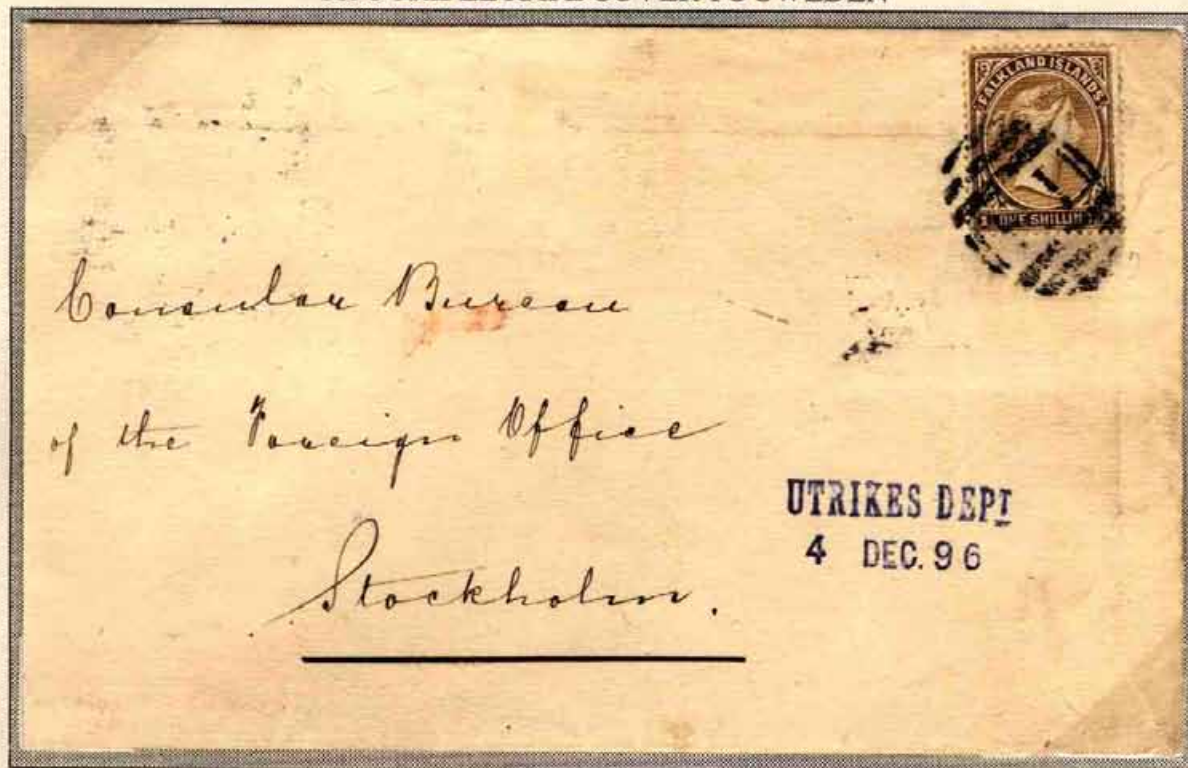 FALKLAND ISLANDS
1
ONE SHILLIN
Consular Bureau
of the Foreign Office
Stockholm.
UTRIKES DEPT
4 DEC. 96